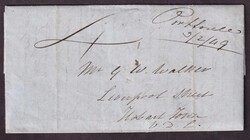 4
Portlouis
3/2/49
Mr G. W. Walker
Liverpool Street
Hobart Town
V. D. L.